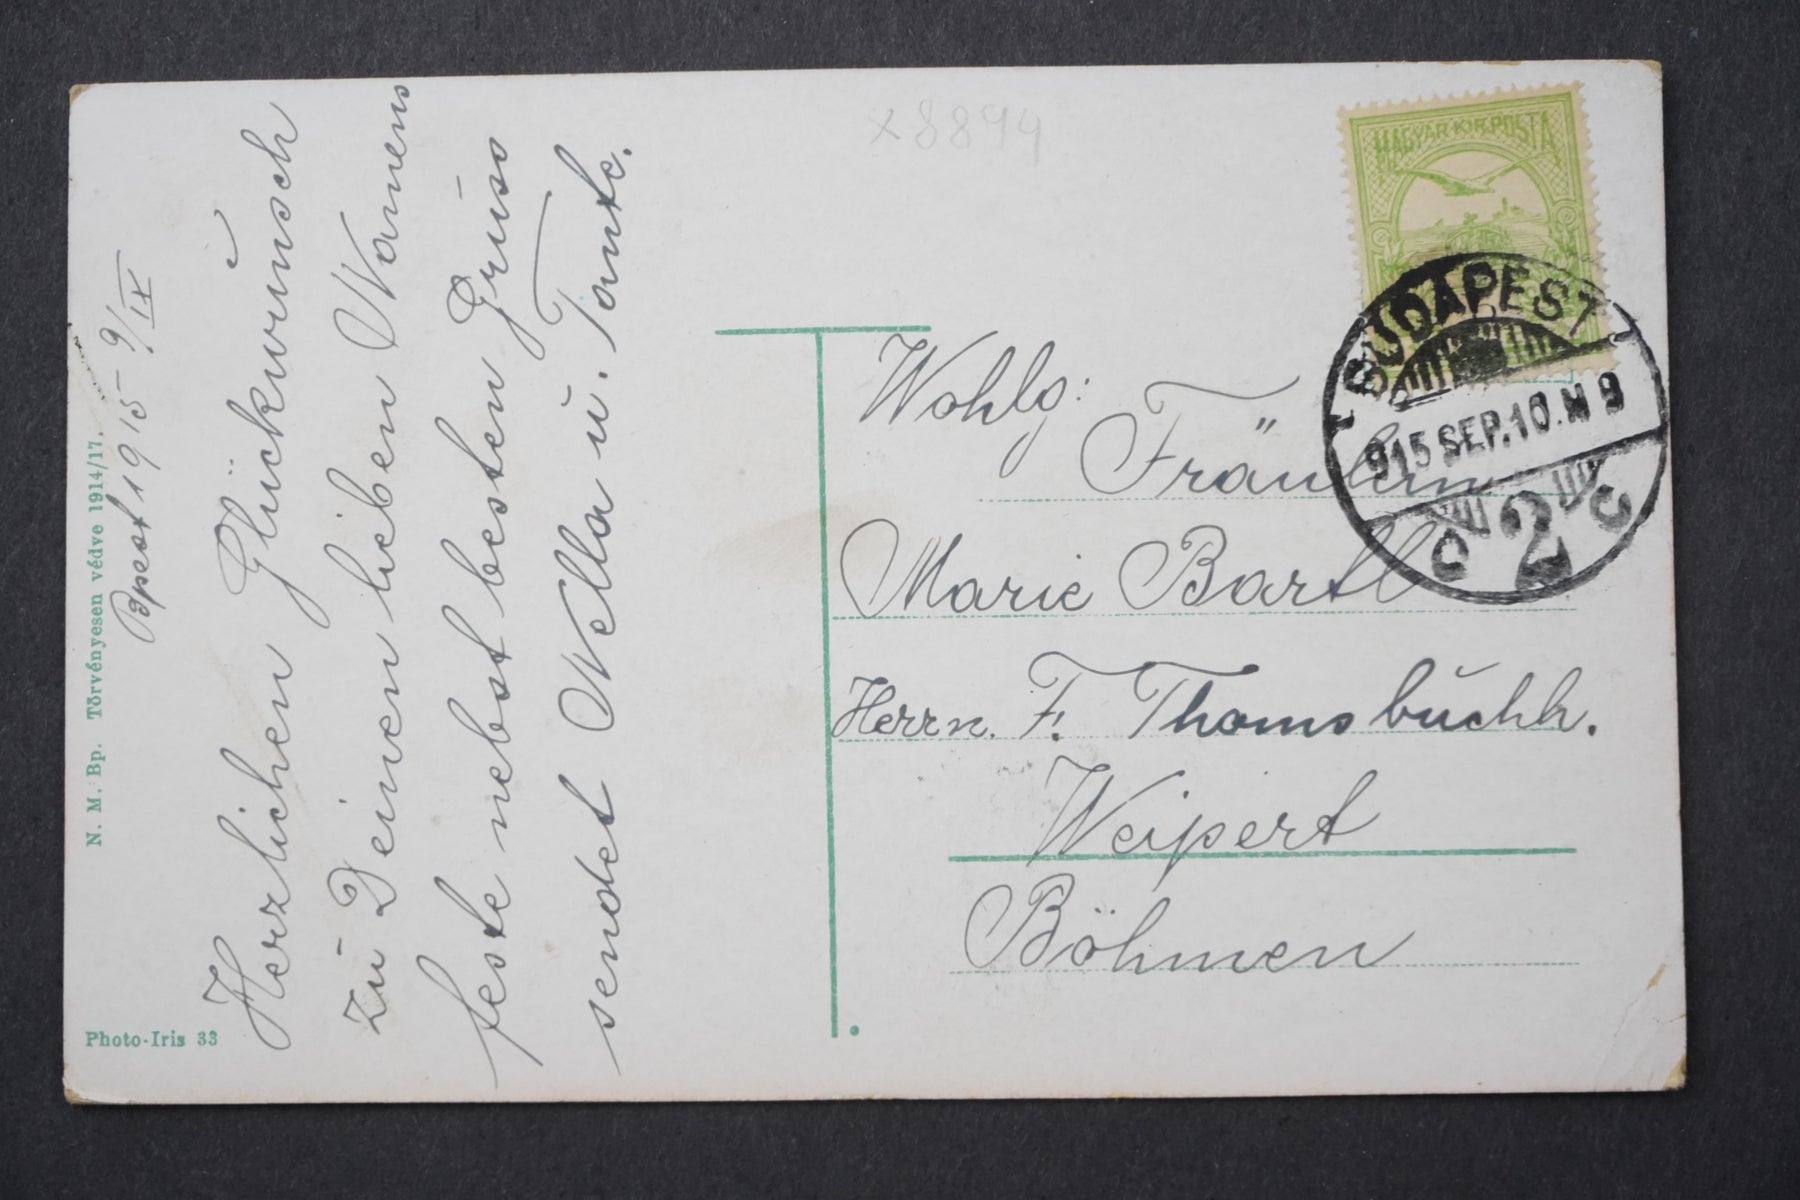 x 8894
MAGYAR KIR. POSTA
BUDAPEST
915 SEP. 10. N 9
2
Bpest 1915 9/IX
Herzlichen Glückwunsch
zu Deinen lieben Namens
feste nebst besten Gruss
sendet Nella u. Tante.
Wohlg:
Fräulein
Marie Bartl
Herrn. F. Thoms buchh.
Weipert
Böhmen
N. M. Bp. Törvényesen védve 1914/17.
Photo-Iris 33